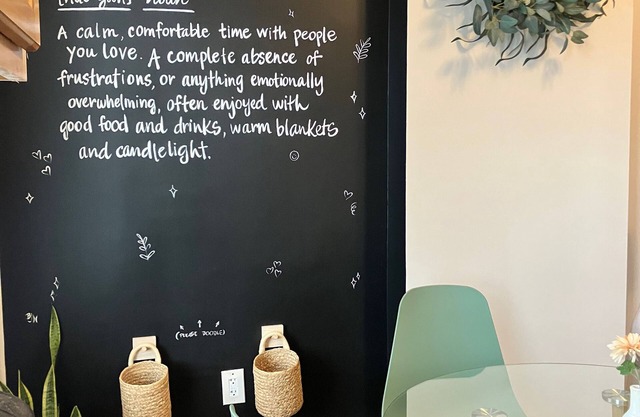 noun
A calm, comfortable time with people
you love. A complete absence of
frustrations, or anything emotionally
overwhelming, often enjoyed with
good food and drinks, warm blankets
and candlelight.
(PLEASE DOODLE)